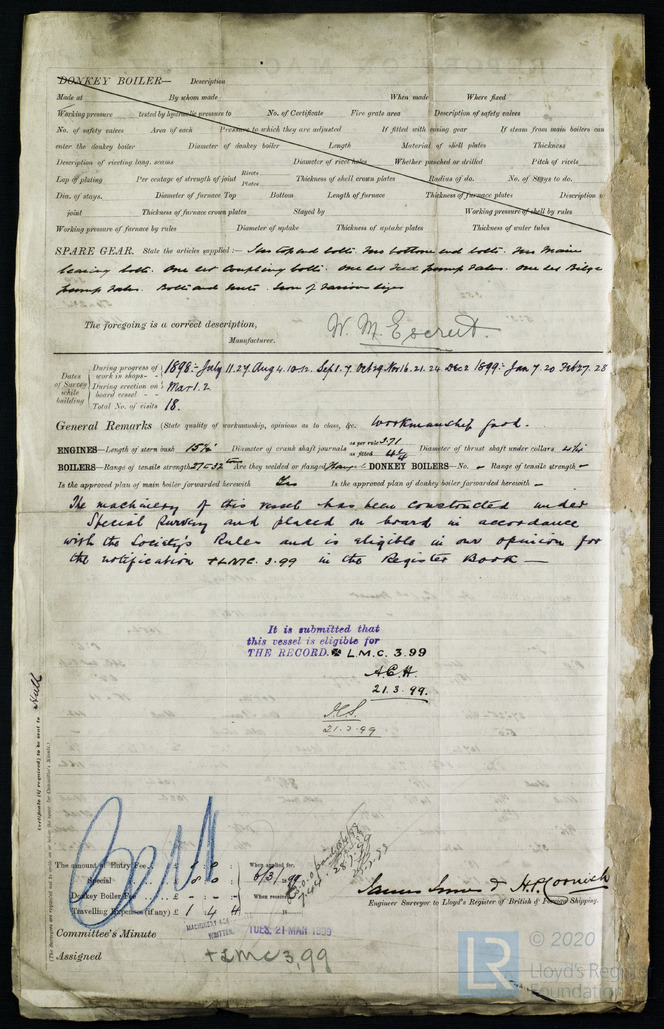 DONKEY BOILER— Description
Made at By whom made When made Where fixed
Working pressure tested by hydraulic pressure to No. of Certificate Fire grate area Description of safety valves
No. of safety valves Area of each Pressure to which they are adjusted If fitted with easing gear If steam from main boilers can
enter the donkey boiler Diameter of donkey boiler Length Material of shell plates Thickness
Description of riveting long. seams Diameter of rivet holes Whether punched or drilled Pitch of rivets
Lap of plating Per centage of strength of joint Rivets Plates Thickness of shell crown plates Radius of do. No. of Stays to do.
Dia. of stays. Diameter of furnace Top Bottom Length of furnace Thickness of furnace plates Description of
joint Thickness of furnace crown plates Stayed by Working pressure of shell by rules
Working pressure of furnace by rules Diameter of uptake Thickness of uptake plates Thickness of water tubes
SPARE GEAR. State the articles supplied:— Two top end bolts. Two bottom end bolts. Two Main
bearing bolts. One set Coupling bolts. One set Feed pump valves. One set Bilge
pump valves. Bolts and nuts. Iron of various sizes
The foregoing is a correct description,
W. M. Escreet. Manufacturer.
Dates of Survey while building
During progress of work in shops-- 1898:- July 11.27. Aug 4.10.12. Sept 1.7. Oct 29. Nov 16.21.24. Dec 2 1899:- Jan 7.20 Feb 27.28
During erection on board vessel --- Mar 1.2
Total No. of visits 18.
General Remarks (State quality of workmanship, opinions as to class, &c. Workmanship good.
ENGINES—Length of stern bush Diameter of crank shaft journals as per rule 3.71 as fitted Diameter of thrust shaft under collars
BOILERS—Range of tensile strength 27 to 32 tons Are they welded or flanged flanged DONKEY BOILERS—No. — Range of tensile strength —
Is the approved plan of main boiler forwarded herewith Yes Is the approved plan of donkey boiler forwarded herewith —
The machinery of this vessel has been constructed under
Special Survey and placed on board in accordance
with the Society's Rules and is eligible in our opinion for
the notification +LMC. 3.99 in the Register Book —
It is submitted that
this vessel is eligible for
THE RECORD. + L.M.C. 3.99
A.C.H.
21.3.99.
21.3.99
Certificate (if required) to be sent to Hull
The amount of Entry Fee.. £ 1 : 0 :
Special .. .. £ 8 : 0 :
Donkey Boiler Fee .. .. £ — : — :
Travelling Expenses (if any) £ 1 : 4 : 4
When applied for,
6/3/99
When received,
James Jones & H.P. Cornish
Engineer Surveyor to Lloyd's Register of British & Foreign Shipping.
Committee's Minute
MACHINERY CER. WRITTEN.
TUES. 21 MAR 1899
Assigned +LMC 3,99
© 2020
LR
Lloyd's Register
Foundation